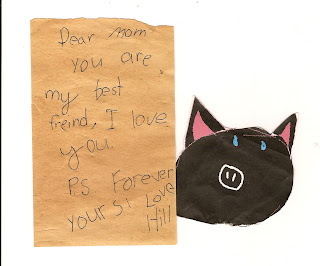 Dear mom
you are
my best
freind, I love
you.
P.S Forever
yours! Love
Hill